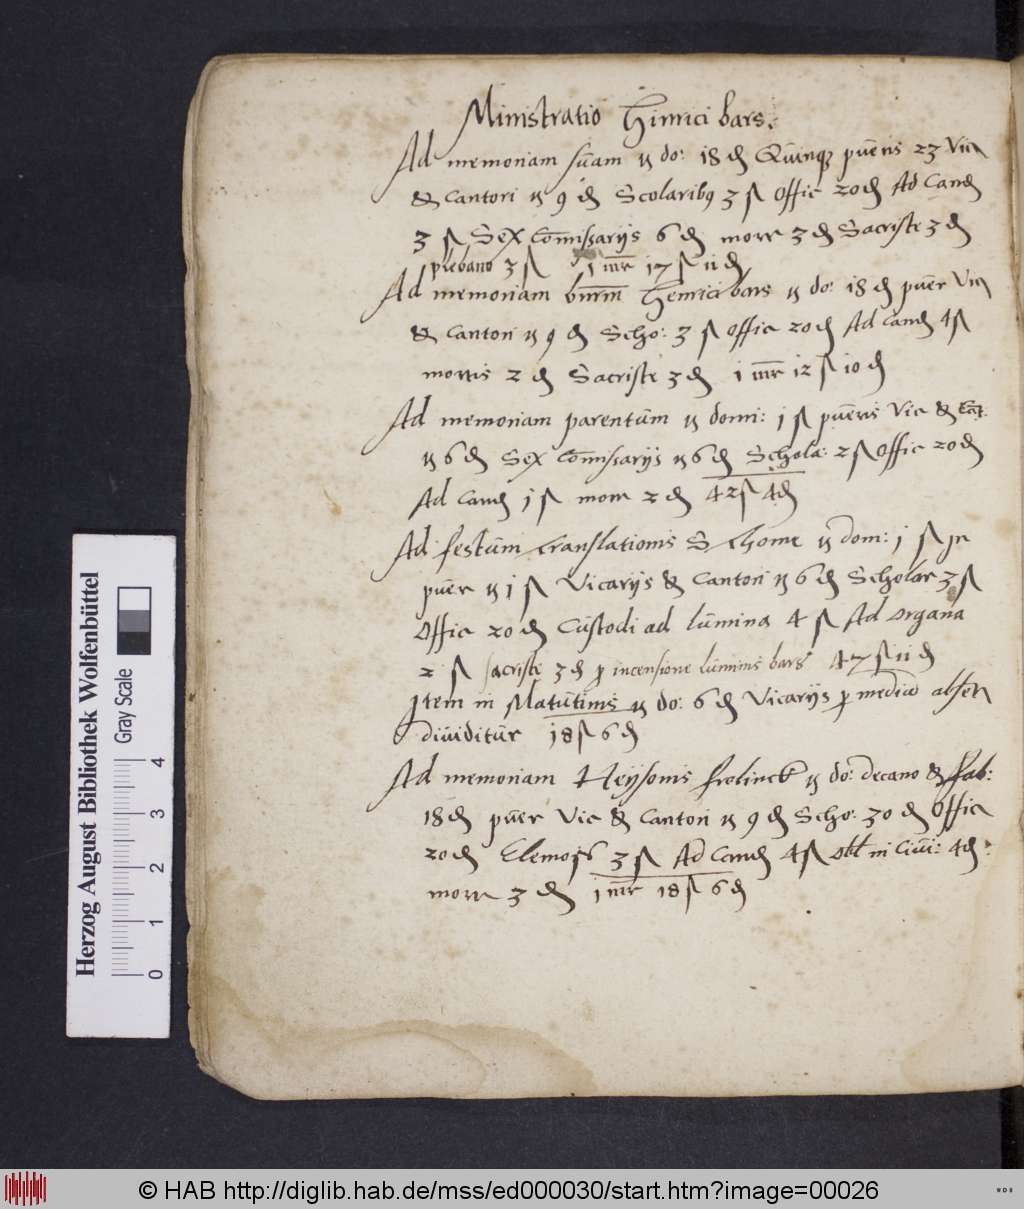 Ministratio Hinrici bars.
Ad memoriam suam ꝟ do: 18 ₰ Quinqꝫ pueris 23 Vic
& Cantori ꝟ 9 ₰ Scolaribꝰ 3 ß Offic 20 ₰ Ad Cand
3 ß Sex Comissarijs 6 ₰ morr 3 ₰ Sacriste 3 ₰
plebano 3 ß 1 mr 17 ß 11 ₰
Ad memoriam Henrici bars ꝟ do: 18 ₰ puer Vic
& Cantori ꝟ 9 ₰ Scho: 3 ß Offic 20 ₰ Ad Cand 4 ß
mortis 2 ₰ Sacriste 3 ₰ 1 mr 12 ß 10 ₰
Ad memoriam parentum ꝟ domi: 1 ß pueris Vic & Cat:
ꝟ 6 ₰ Sex Comissarijs ꝟ 6 ₰ Schola: 2 ß Offic 20 ₰
Ad Cand 1 ß morr 2 ₰ 42 ß 4 ₰
Ad festum translationis S thome ꝟ dom: 1 ß Jn
puer ꝟ 1 ß Vicarijs & Cantori ꝟ 6 ₰ Scholar 3 ß
Offic 20 ₰ Custodi ad lumina 4 ß Ad organa
2 ß sacriste 3 ₰ ꝓ incensione luminis bars 47 ß 11 ₰
Jtem in Matutinis ꝟ do: 6 ₰ Vicarijs ꝓ medio absen
diuiditur 18 ß 6 ₰
Ad memoriam Heysonis frolinck ꝟ do: decano & fab:
18 ₰ puer Vic & Cantori ꝟ 9 ₰ Scho: 30 ₰ Offic
20 ₰ Elemos 3 ß Ad Cand 4 ß obl in Ciui: 4 ₰
morr 3 ₰ 1 mr 18 ß 6 ₰
Herzog August Bibliothek Wolfenbüttel
Gray Scale
0 1 2 3 4
© HAB http://diglib.hab.de/mss/ed000030/start.htm?image=00026